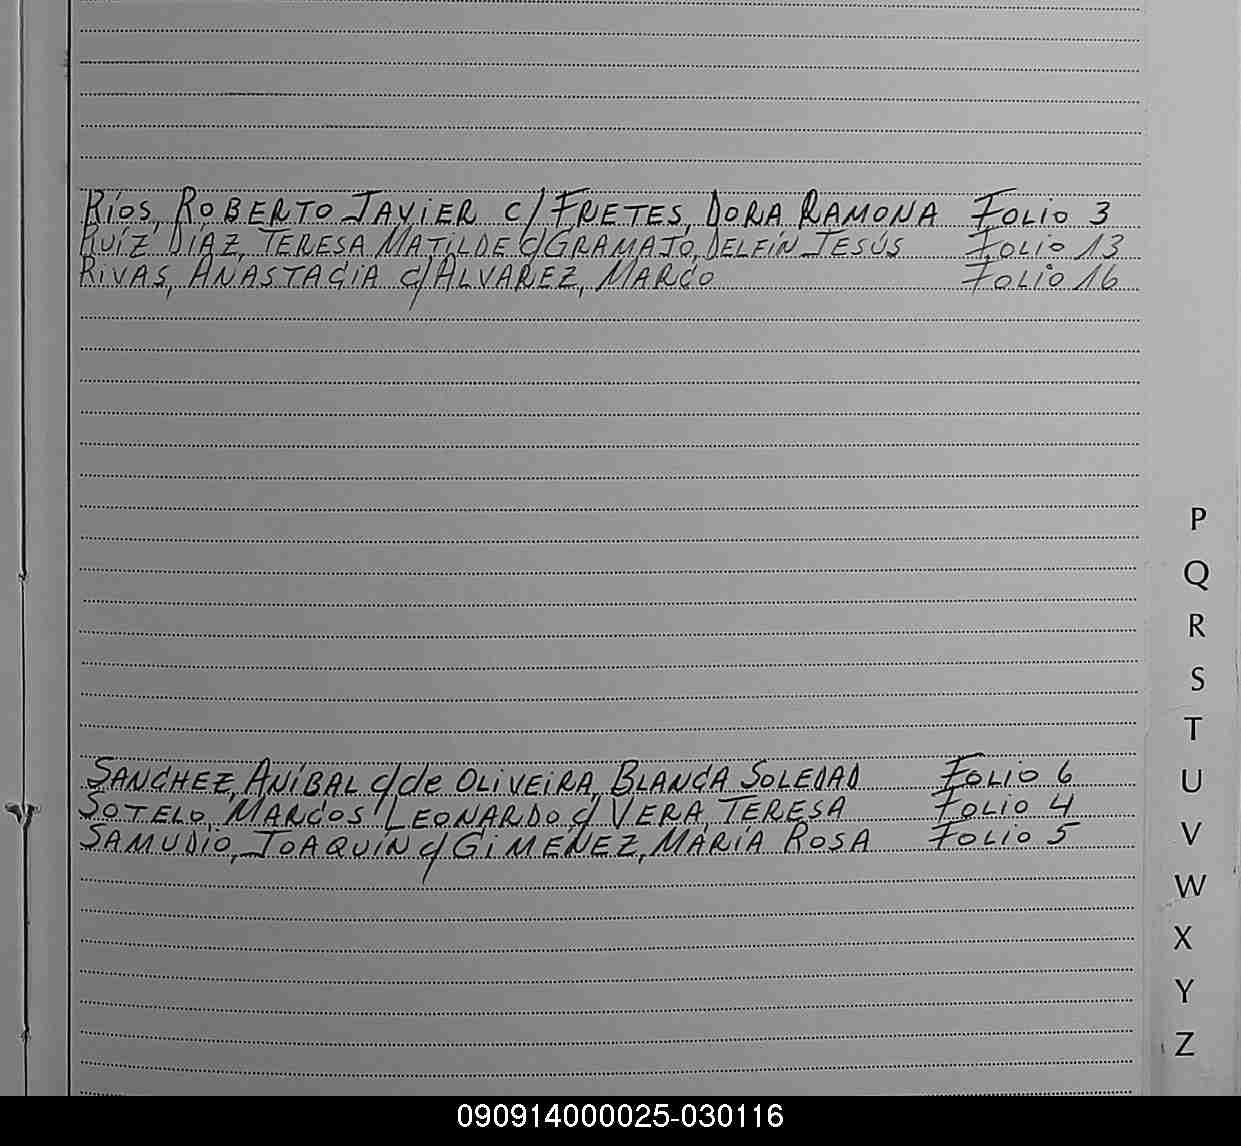 Ríos, ROBERTO JAVIER c/ FRETES, DORA RAMONA FOLIO 3
RUÍZ DÍAZ, TERESA MATILDE c/ GRAMAJO, DELFÍN JESÚS FOLIO 13
RIVAS, ANASTACIA c/ ALVAREZ, MARCO FOLIO 16
P
Q
R
S
T
SANCHEZ, ANÍBAL c/ de OLIVEIRA, BLANCA SOLEDAD FOLIO 6
U
SOTELO, MARCOS LEONARDO c/ VERA, TERESA FOLIO 4
SAMUDIO, JOAQUÍN c/ GIMENEZ, MARÍA ROSA FOLIO 5
V
W
X
Y
Z
090914000025-030116